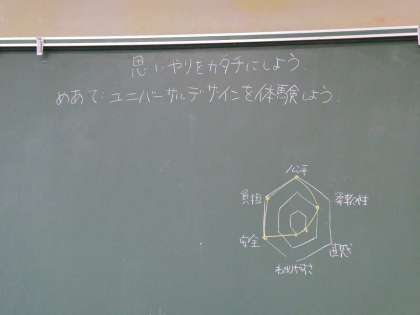 思いやりをカタチにしよう
めあて:ユニバーサルデザインを体験しよう.
公平
負担
柔軟性
安全
直感
わかりやすさ